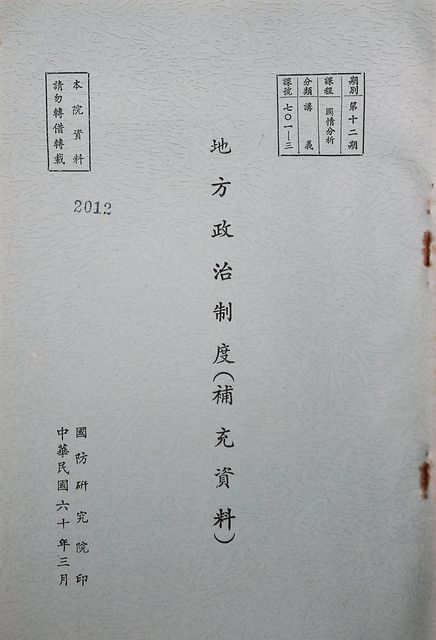 期別 第十二期
課程 國情分析
分類 講義
課號 七〇一—三
地方政治制度(補充資料)
本院資料
請勿轉借轉載
2012
國防研究院印
中華民國六十年三月